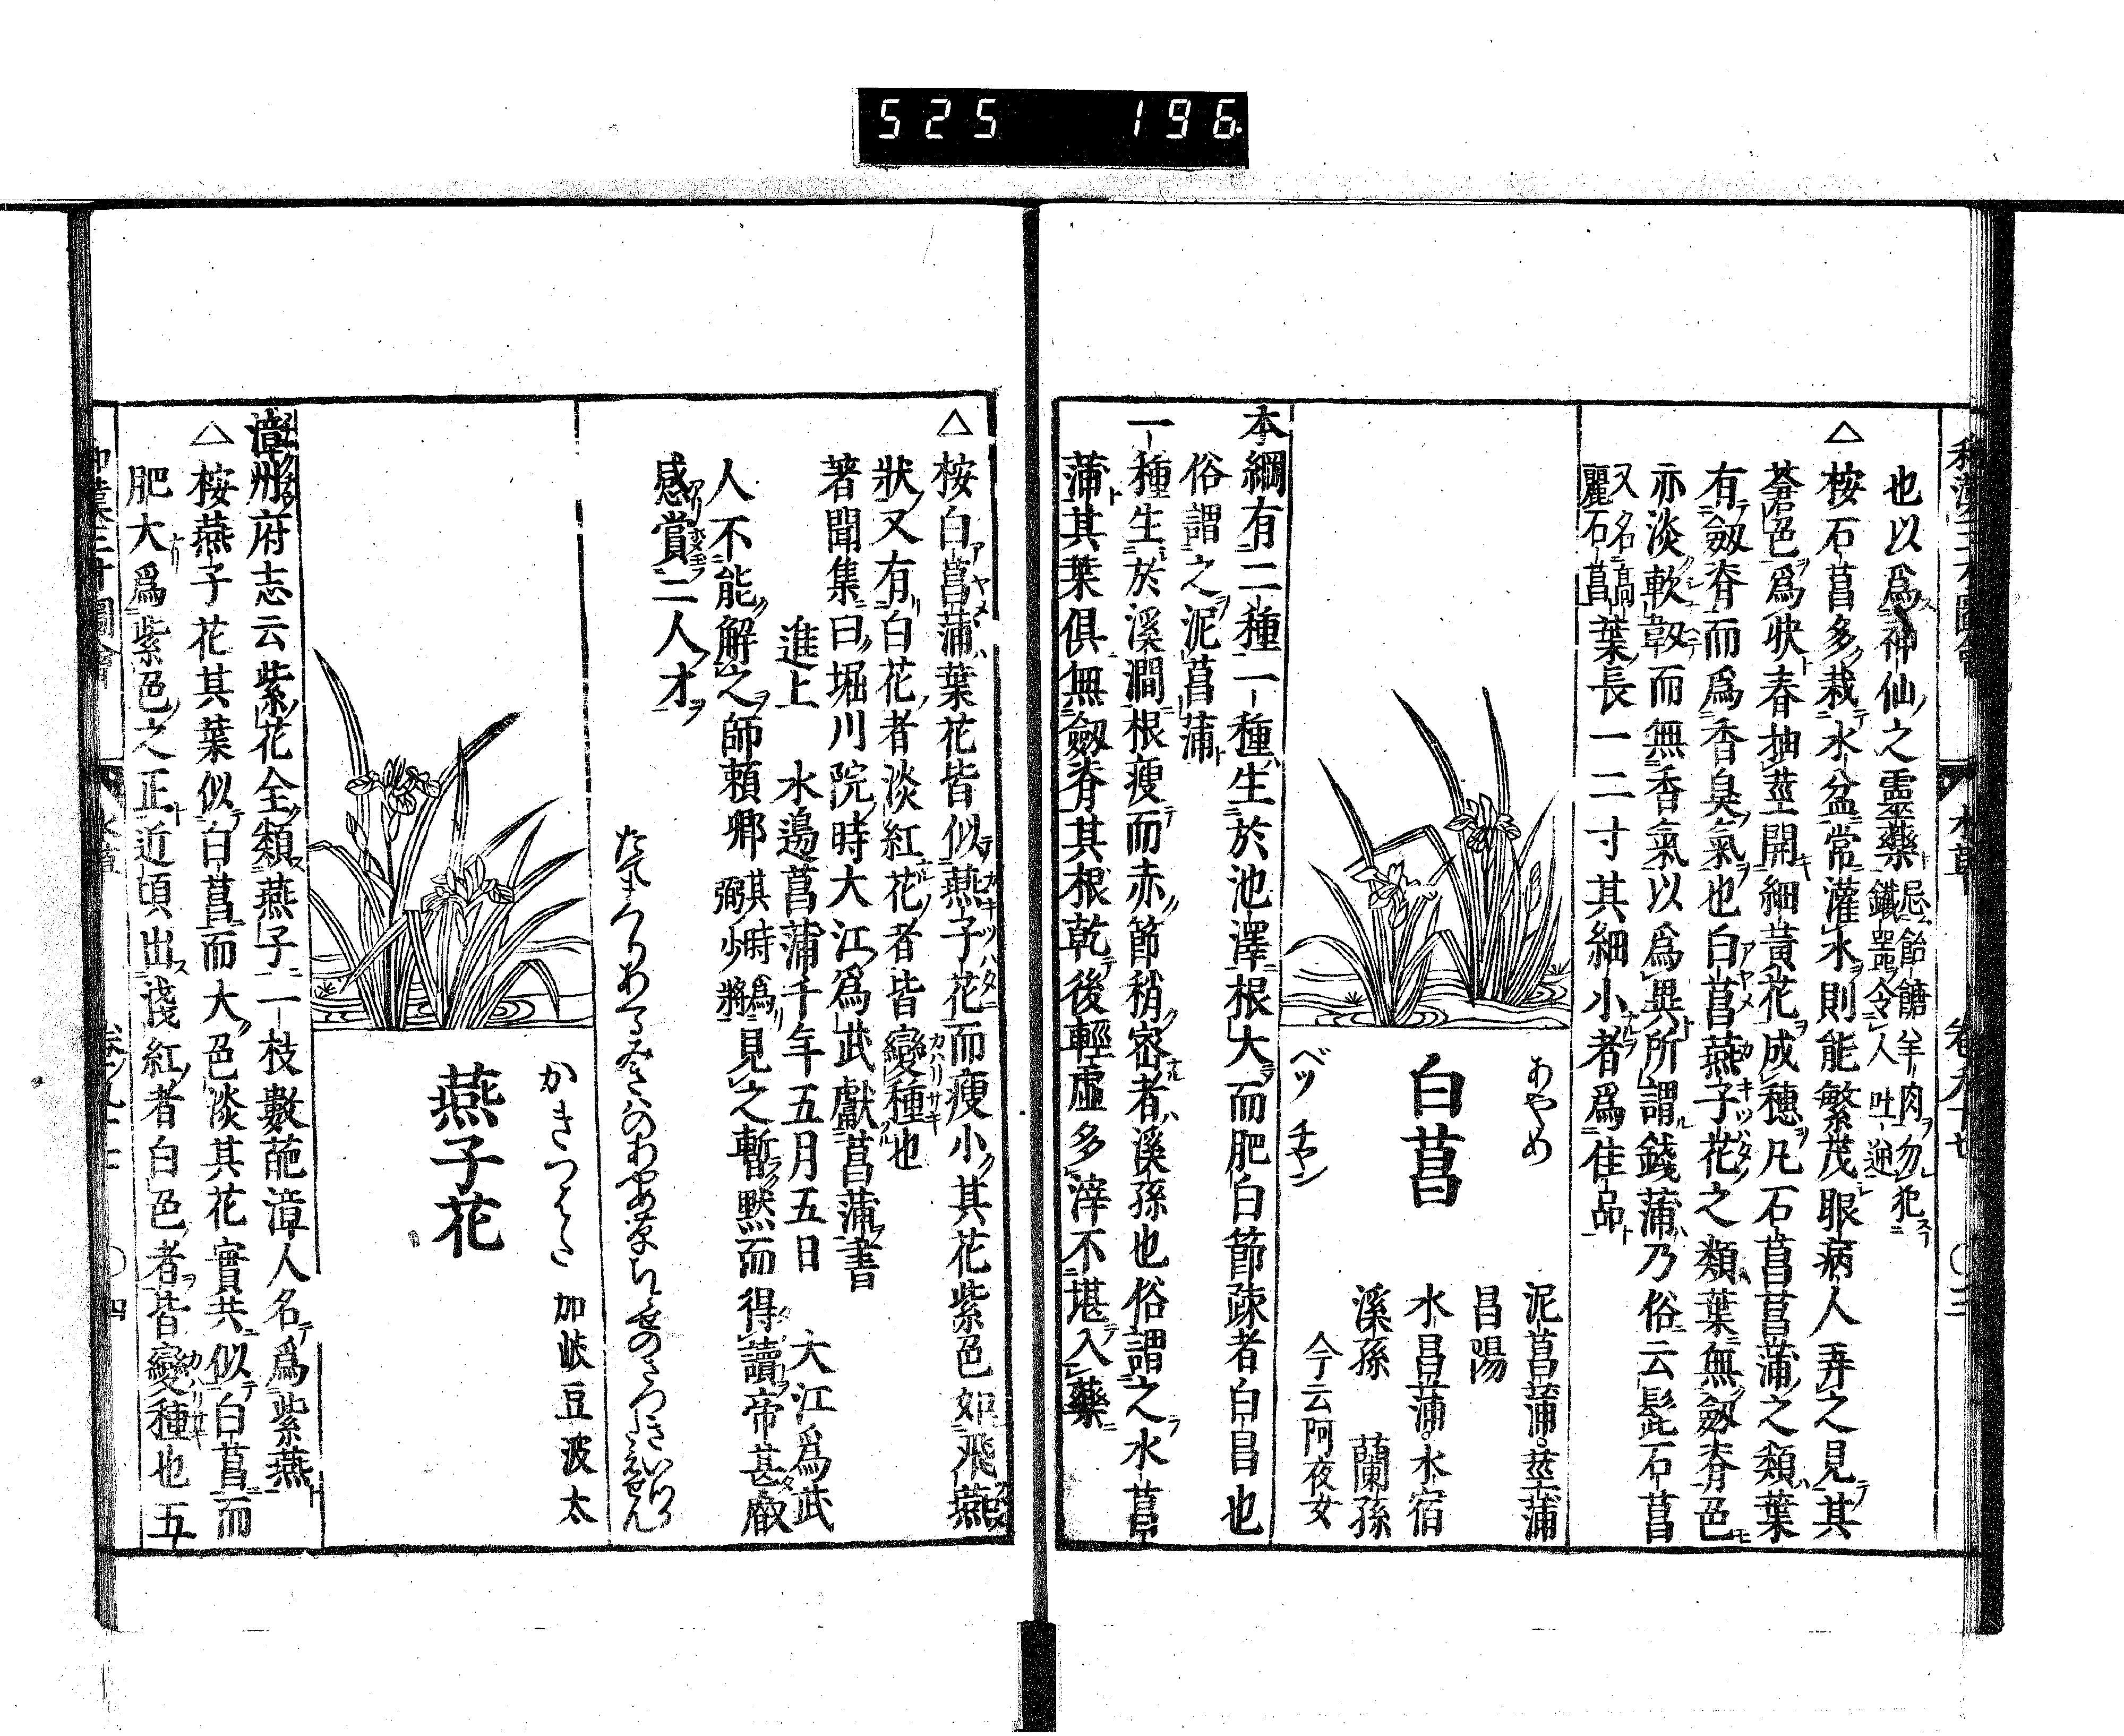 525 196
和漢三才圖會 水草 卷九十七 ○三
也以爲神仙之靈藥忌飴餹羊肉勿犯鐵器令人吐逆
△桉石菖多栽水盆常灌水則能繁茂眼病人弄之見其
蒼色爲驶春抽莖開細黃花成穗凡石菖菖蒲之類葉
有劔脊而爲香臭氣也白菖燕子花之類葉無劔脊色
亦淡軟靱而無香氣以爲異所謂錢蒲乃俗云髭石菖
又名高麗石菖葉長一二寸其細小者爲佳品
あやめ
白菖
ベッ チヤン
泥菖蒲。莖蒲
昌陽
水昌蒲。水宿
溪孫 蘭孫
今云阿夜女
本綱有二種一種生於池澤根大而肥白節疎者白昌也
俗謂之泥菖蒲
一種生於溪澗根瘦而赤節稍密者溪孫也俗謂之水菖
蒲其葉俱無劔脊其根乾後輕虛多滓不堪入藥
△桉白菖蒲葉花皆似燕子花而瘦小其花紫色如飛燕
狀又有白花者淡紅花者皆變種也
著聞集曰堀川院時大江爲武獻菖蒲書
進上 水邉菖蒲千年五月五日 大江爲武
人不能解之師頼卿其時爲弼少將見之暫默而得讀帝甚叡
感賞二人才
たてまつりあくるみきはのあやめ草ちとせのさつきいつかたえせん
かきつばた
燕子花
加岐豆波太
漳州府志云紫花全類燕子一枝數葩漳人名爲紫燕
△桉燕子花其葉似白菖而大色淡其花實共似白菖而
肥大爲紫色之正近頃出淺紅者白色者皆變種也五
○四